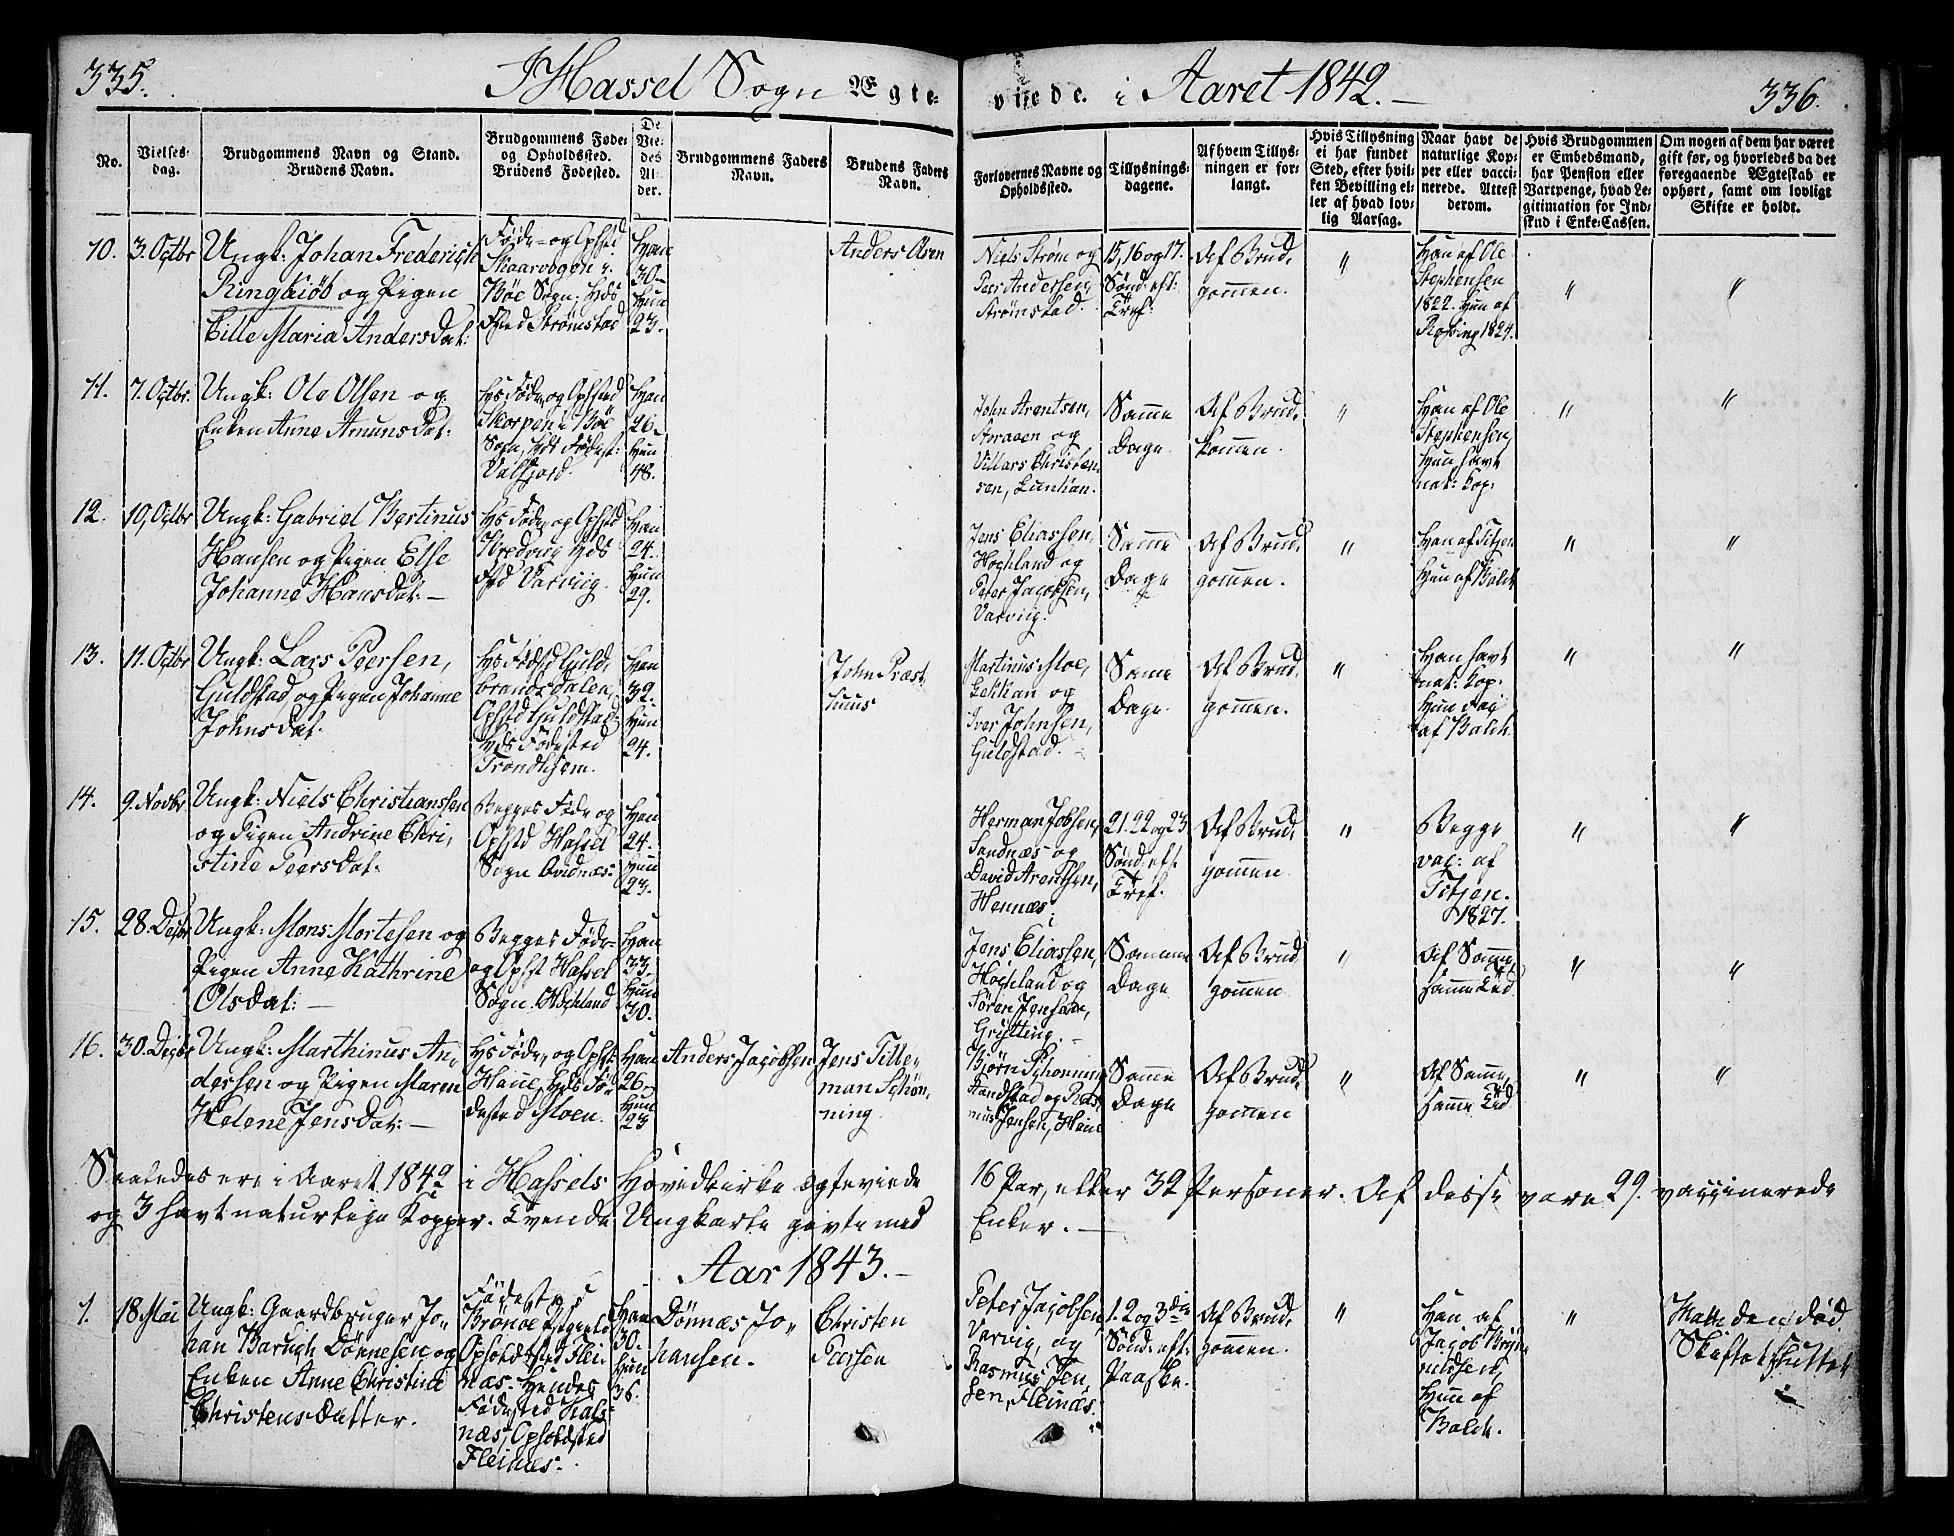 335.
I Hassel Sogn Ægte-
viede. i Aaret 1842.
336.
No.
Vielses-
dag.
Brudgommens Navn og Stand.
Brudens Navn.
Brudgommens Føde-
og Opholdssted.
Brudens Fødested.
De
Vie-
des
Al-
der.
Brudgommens Faders
Navn.
Brudens Faders
Navn.
Forlovernes Navne og
Opholdssted.
Tillysnings-
dagene.
Af hvem Tillys-
ningen er for-
langt.
Hvis Tillysning
ei har fundet
Sted, efter hvil-
ken Bevilling el-
ler af hvad lov-
lig Aarsag.
Naar havt de
naturlige Kop-
per eller vacci-
nerede. Attest
derom.
Hvis Brudgommen
er Embedsmand,
har Pension eller
Vartpenge, hvad Le-
gitimation for Ind-
skud i Enke-Cassen.
Om nogen af dem har været
gift før, og hvorledes da det
foregaaende Ægteskab er
ophørt, samt om lovligt
Skifte er holdt.
10.
3. Octbr
Ungk: Johan Frederich
Ringkiøb og Pigen
Cille Maria Andersdat:
Føde- og Ophsted
Skaarvogen i
Bøe Sogn; Hds
Fsted Strømstad
Han
30.
Hun
23.
Anders Aren
Niels Strøm og
Peer Andersen,
Strømstad.
15, 16 og 17.
Sønd: eft:
Tref:
Af Brud-
gommen.
"
Han af Ole
Stephensen
1822. Hun af
Rossing 1824.
"
"
11.
7. Octbr.
Ungk: Ole Olsen og
Enken Anne Amunsdat:
Hs Føde- og Ophsted
Skorpen i Bøe
Sogn, Hds Fødest:
Valfjord.
Han
26.
Hun
48.
John Arentsen,
og
Villars Christen-
sen,
Samme
Dage
Af Brud-
kommen.
"
Han af Ole
Stephensen,
Hun havt
nat: Kop:
"
"
12.
10, Octbr
Ungk: Gabriel Bertinus
Hansen og Pigen Else
Johanne Hansdat:
Hs Føde- og Ophsted
Hds
Fsted Varviig.
Han
24.
Hun
29.
Jens Eliassen,
Hochland og
Peter Jacobsen,
Varviig.
Samme
Dage
Af Brud-
gommen.
"
Han af Titjen
Hun af Balch
"
"
13.
11. Octbr
Ungk: Lars Peersen,
Guldstad og Pigen Johanne
Johnsdat.
Hs Fødsted Guld-
brandsdalen,
Ophsted Guldstad.
Hds Fødested
Trondhjem.
Han
32.
Hun
24.
John Præst-
Martinus Moe,
Lekkan og
Iver Johnsen,
Guldstad.
Same
Dage
Af Brud-
gommen.
"
Han havt
nat: Kop:
Hun
af Balch
"
"
14.
9. Novbr
Ungk: Niels Christianssen
og Pigen Andrine Chri-
stine Peersdat:
Begges Føde og
Ophsted Hassel
Sogn Qvidnæs:
Han
24.
Hun
23.
Herman Jobsen,
Sandnæs og
David Arentsen,
Hennæs.
21. 22 og 23
Sønd: eft
Tref.
Af Brud-
gommen
"
Begge
vac: af
Titjen.
1827.
"
"
15.
28. Decbr
Ungk: Mons Mortesen og
Pigen Anne Kathrine
Olsdat:
Begges Føde-
og Ophst Hassel
Sogn. Hochland
Han
33.
Hun
30.
Jens Eliassen,
Hochland og
Søren Jensen,
Grytting.
Samme
Dage
Af Brud
gommen
"
Af Samme,
samme Tid
"
"
16.
30. Decbr
Ungk: Marthinus An-
dersen og Pigen Maren
Helene Jensdat:
Hs Føde- og Ophst
Haue, Hds Fø-
dested Moen.
Han
26.
Hun
23
Anders Jacobsen
Jens Tille-
man Schøn-
ning.
Bjørn Schønning
Sandstad og Ras-
mus Jensen,
Samme
Dage
Af Brud-
gommen
"
Af Samme,
samme Tid
"
"
Saaledes ere i Aaret 1842 i Hassels Hovedkirke ægteviede 16 Par, eller 32 Personer. Af disse vare 29. vaccinerede
og 3 havt naturlige Kopper. Tvende Ungkarle givte med Enker.
Aar 1843.
1.
18 Mai
Ungk: Gaardbruger Jo-
han Baruch Dønnesen og
Enken Anne Christine
Christensdatter.
Fødested
Brønøe Pgjeld
Opholdssted Flei-
næs. Hendes
Fødested Kals-
næs, Opholdsted
Fleines.
Han
30.
Hun
36.
Dønnæs Jo-
hansen.
Christen
Peersen
Peter Jacobsen
Varvig, og
Rasmus Jen-
sen, Fleinæs.
1. 2 og 3die
Sønd: eft:
Paaske.
Af Brud-
gommen.
"
Han af
Jacob Bryn-
nildsen,
Hun af
Balch.
"
Manden død
Skiftet sluttet